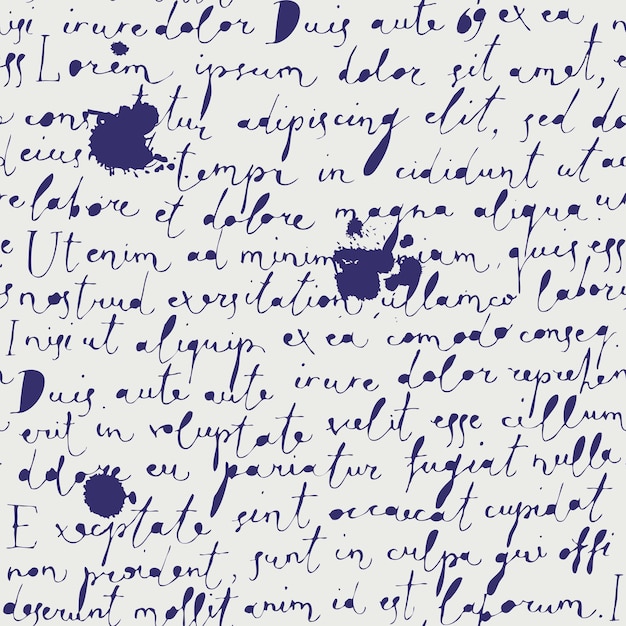 isi irure dolor Duis aute ex ea
Lorem ipsum dolor sit amet,
adipiscing elit, sed do
eius tempi in cididunt ut
labore et dolore magna aliqua
Ut enim ad minim quis
nostrud exersitation ullamco
I nisi ut aliquip ex ea comodo conseq
Duis aute aute irure dolor reprehen
erit in voluptate velit esse cillum
dolore eu pariatur fugiat nulla
Exceptate sint occaecat cupidat
non proident, sunt in culpa qui offi
deserunt mollit anim id est, laborum. I